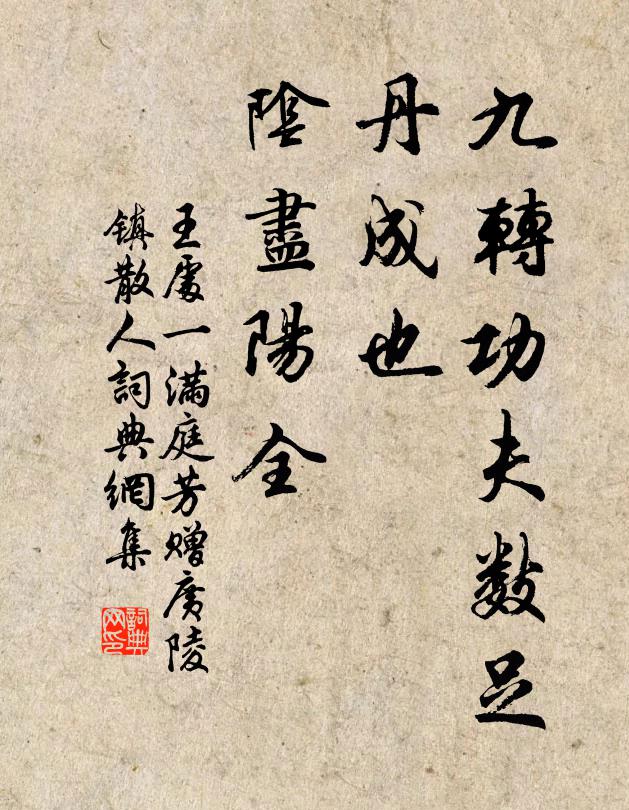 九轉功夫数足
丹成也
陰盡陽全
王處一满庭芳赠廣陵
镇散人詞典網集
詞典网印